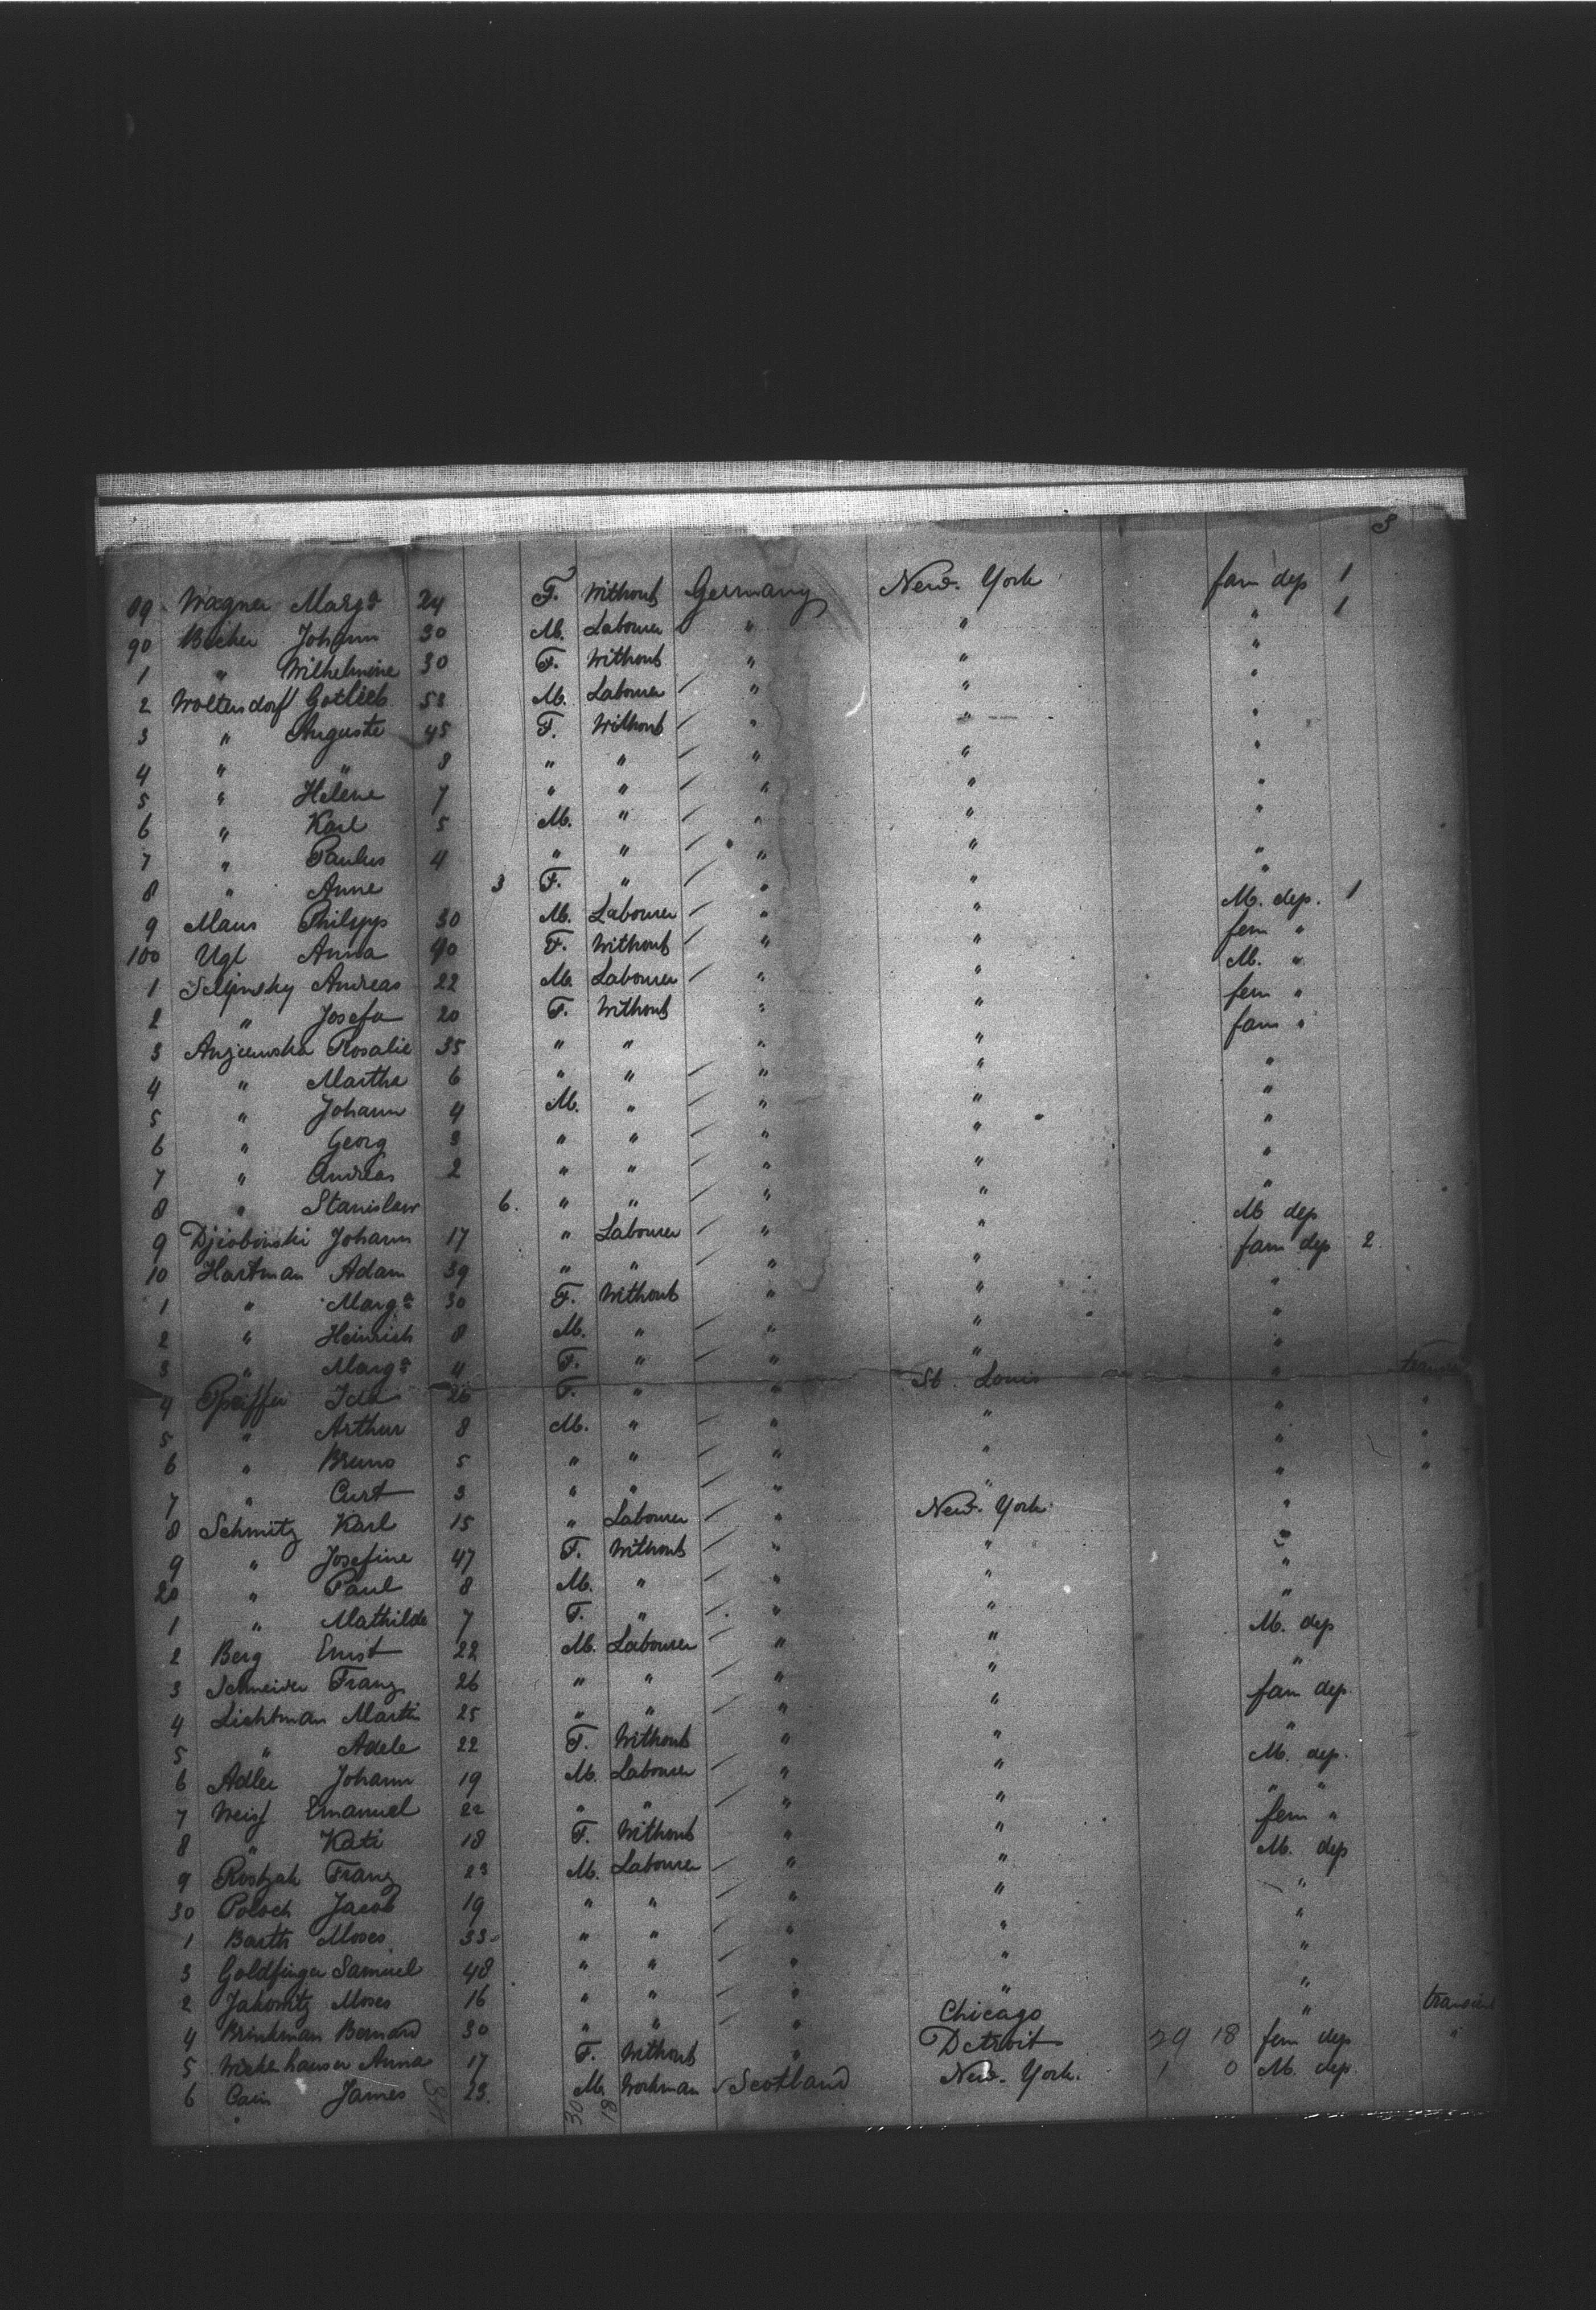 3
89 Wagner Margª 24 F. Without Germany New-York fam dep 1
90 Becker Johann 30 M. Labourer " " " 1
1 " Wilhelmine 30 F. Without " " "
2 Woltersdorf Gotlieb 58 M. Labourer " " "
3 " Auguste 45 F. Without " " "
4 " " 8 " " " " "
5 " Helene 7 " " " " "
6 " Karl 5 M. " " " "
7 " Paulus 4 " " " " "
8 " Anne 3 F. " " " "
9 Maus Philipp 30 M. Labourer " " M. dep. 1
100 Ugl Anna 40 F. Without " " fem "
1 Andreas 22 M. Labourer " " M. "
2 " Josefa 20 F. Without " " fem "
3 Rosalie 35 " " " " fam "
4 " Martha 6 " " " " "
5 " Johann 4 M. " " " "
6 " Georg 3 " " " " "
7 " Andreas 2 " " " " "
8 " Stanislaw 6. " " " " "
9 Djiobinski Johann 17 " Labourer " " M dep
10 Hartman Adam 39 " " " " fam dep 2
1 " Margª 30 F. Without " " "
2 " Heinrich 8 M. " " " "
3 " Margª 4 F. " " " "
4 Pfeiffer Ida 26 F. " " St. Louis "
5 " Arthur 8 M. " " " " "
6 " Bruno 5 " " " " " "
7 " Curt 3 " " " " " "
8 Schmitz Karl 15 " Labourer " New-York "
9 " Josefine 47 F. Without " " "
20 " Paul 8 M. " " " "
1 " Mathilde 7 F. " " " "
2 Berg Ernst 22 M. Labourer " " M. dep
3 Schneider Franz 26 " " " " "
4 Lichtman Martin 25 " " " " fam dep.
5 " Adele 22 F. Without " " "
6 Adler Johann 19 M. Labourer " " M. dep.
7 Weiss Emanuel 22 " " " " " "
8 " Kati 18 F. Without " " fem "
9 Franz 23 M. Labourer " " M. dep
30 Poloch Jacob 19 " " " " "
1 Barth Moses 33 " " " " "
3 Goldfinger Samuel 48 " " " " "
2 Jakowitz Moses 16 " " " " "
4 Brinkman Bernard 30 " " " Chicago "
5 Anna 17 F. Without " Detroit 29 18 fem dep "
6 Cain James 23. M. Workman Scotland New-York. 1 0 M. dep.
30 18